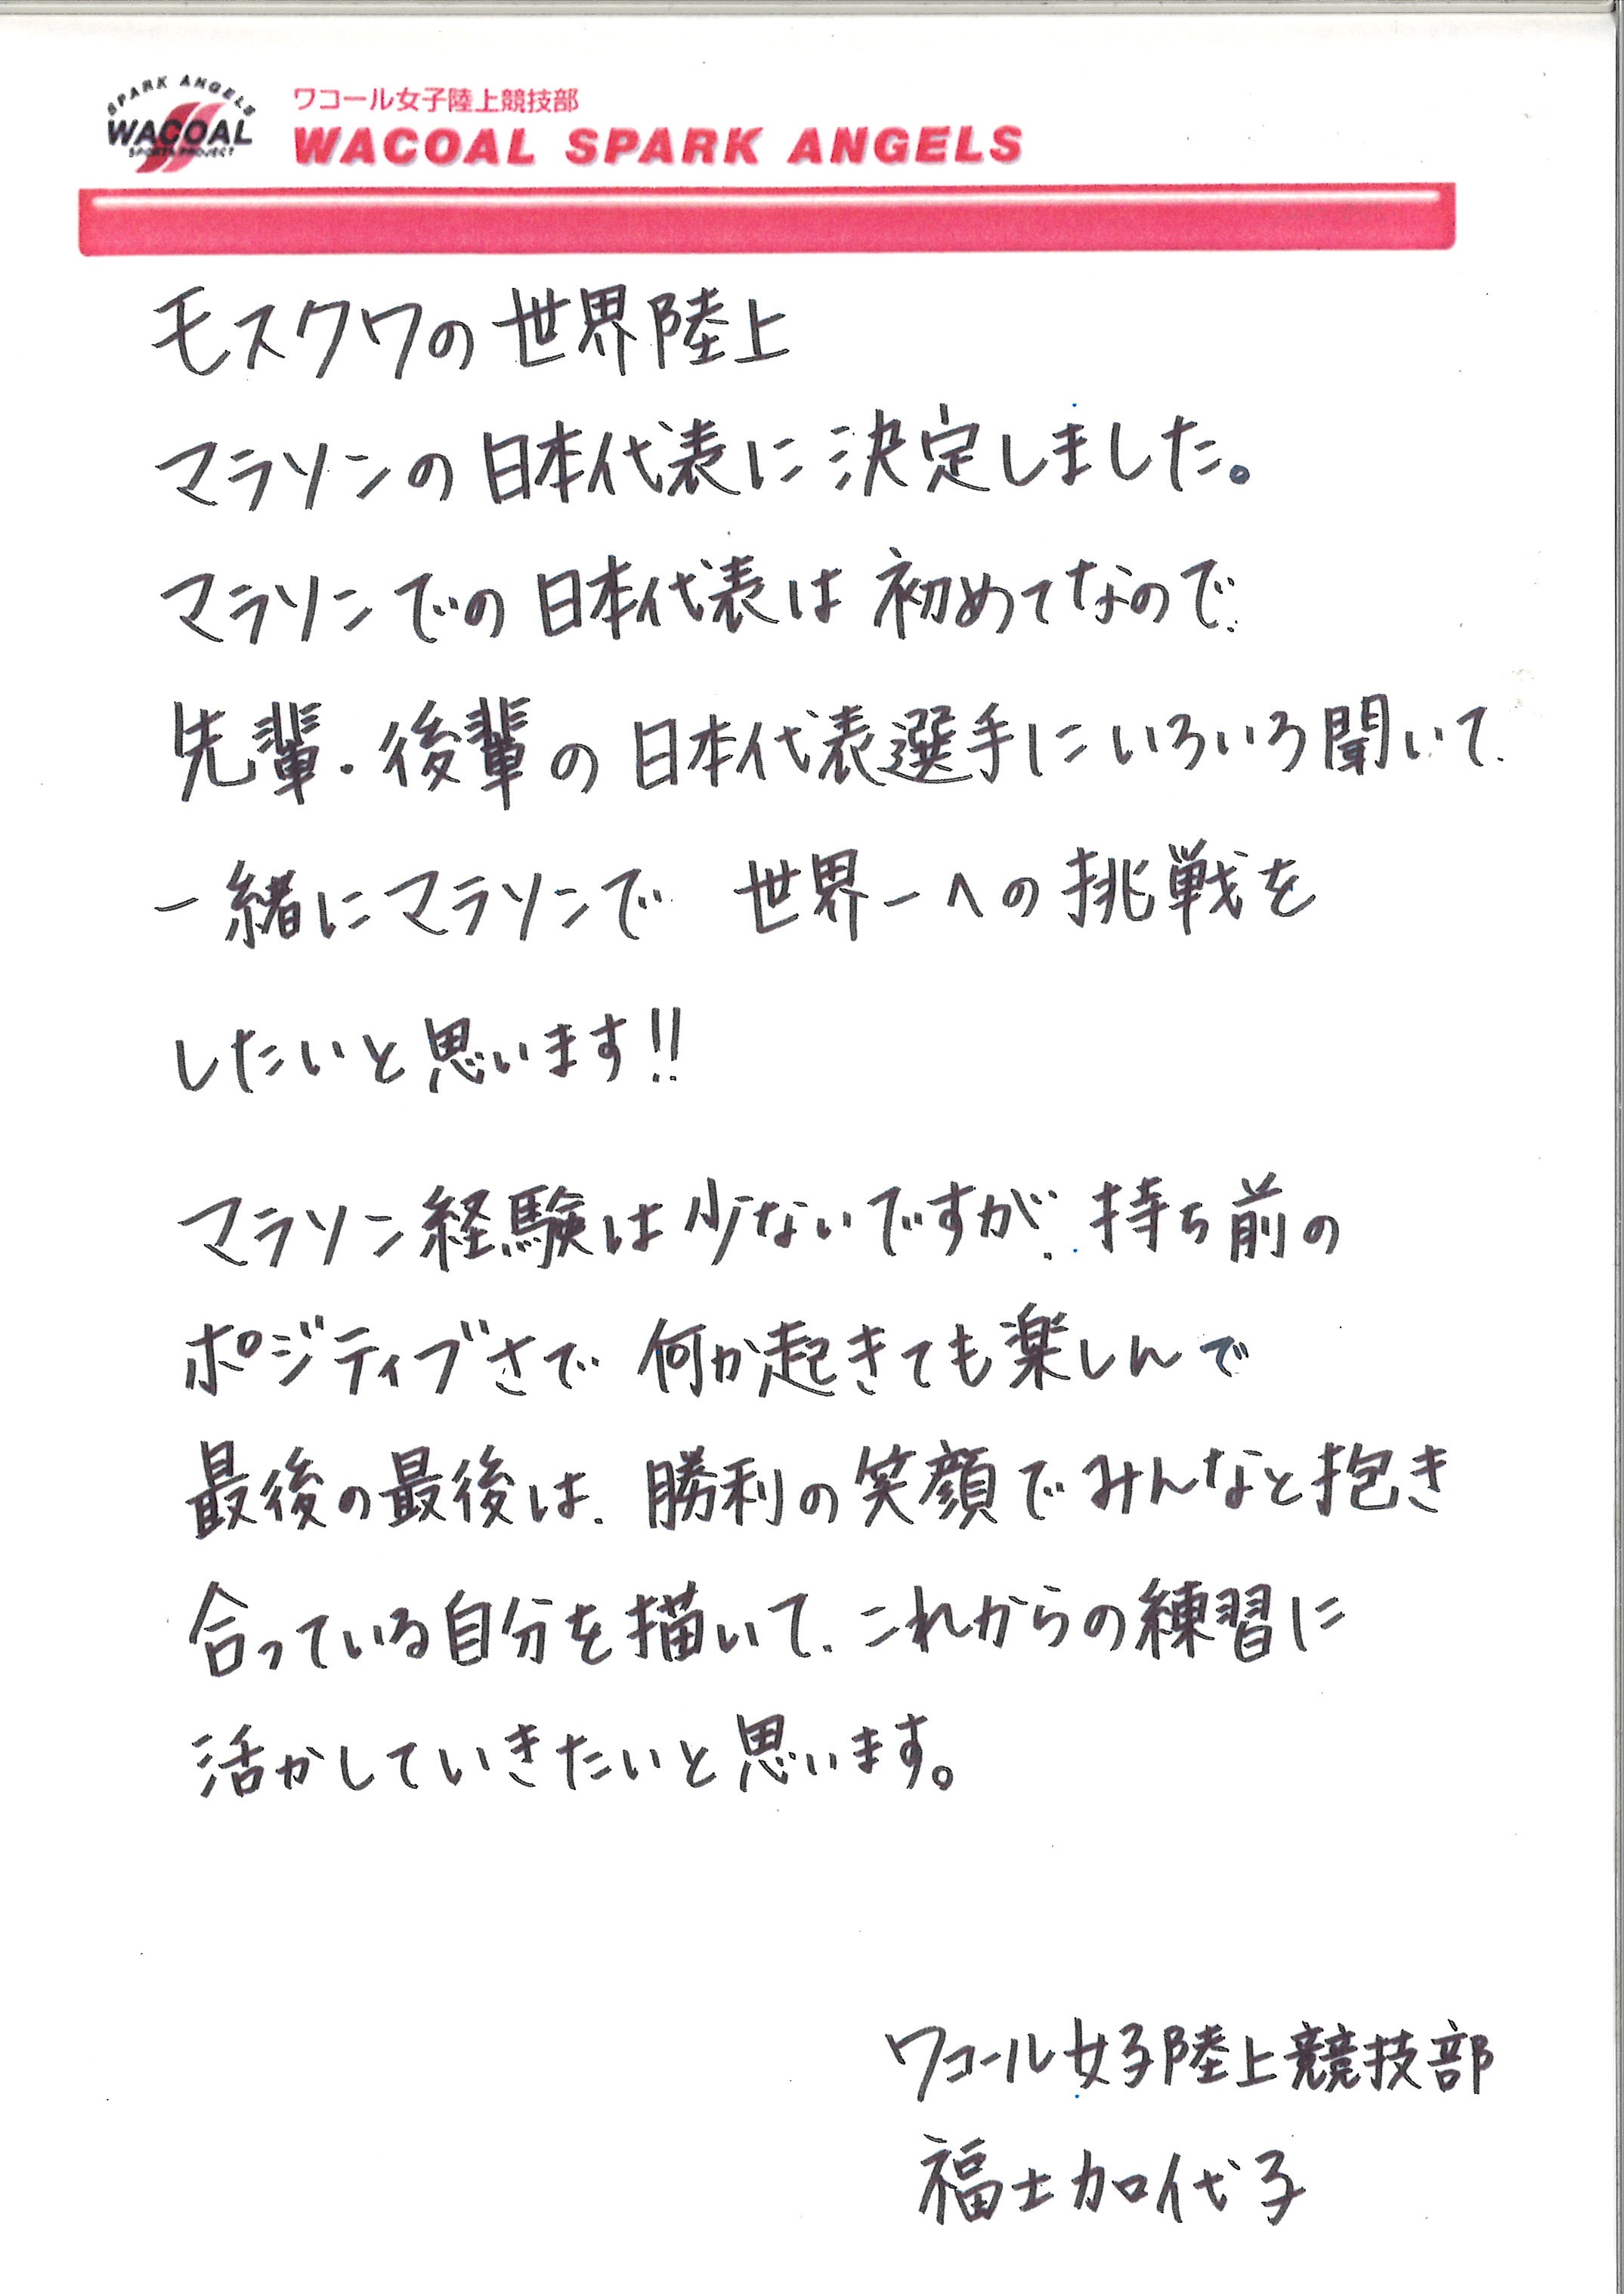 SPARK ANGELS
WACOAL
SPORTS PROJECT
ワコール女子陸上競技部
WACOAL SPARK ANGELS
モスクワの世界陸上
マラソンの日本代表に決定しました。
マラソンでの日本代表は初めてなので、
先輩・後輩の日本代表選手にいろいろ聞いて、
一緒にマラソンで 世界一への挑戦を
したいと思います!!
マラソン経験は少ないですが、持ち前の
ポジティブさで 何か起きても楽しんで
最後の最後は、勝利の笑顔でみんなと抱き
合っている自分を描いて、これからの練習に
活かしていきたいと思います。
ワコール女子陸上競技部
福士加代子